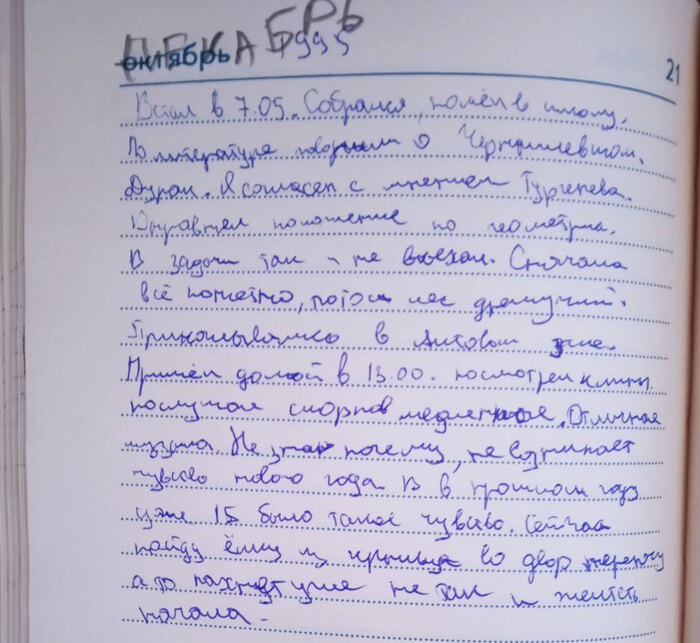 ДЕКАБРЬ
октябрь 1995
21
Встал в 7.05. Собрался, пошёл в школу.
В литературе говорили о Чернышевском.
Дурак. Я согласен с мнением Тургенева.
Выправил положение по геометрии.
В задачи так и не въехал. Сначала
всё понятно, потом лес дремучий.
Прикалывались в актовом зале.
Пришёл домой в 15.00. посмотрел клипы
послушал скорпов медленное. Отличная
музыка. Не знаю почему, не возникает
чувство нового года. В в прошлом году
уже 15 было такое чувство. Сейчас
пойду ёлку из крыльца во двор перенесу
а то пахнет уже не так и желтеть
начала.